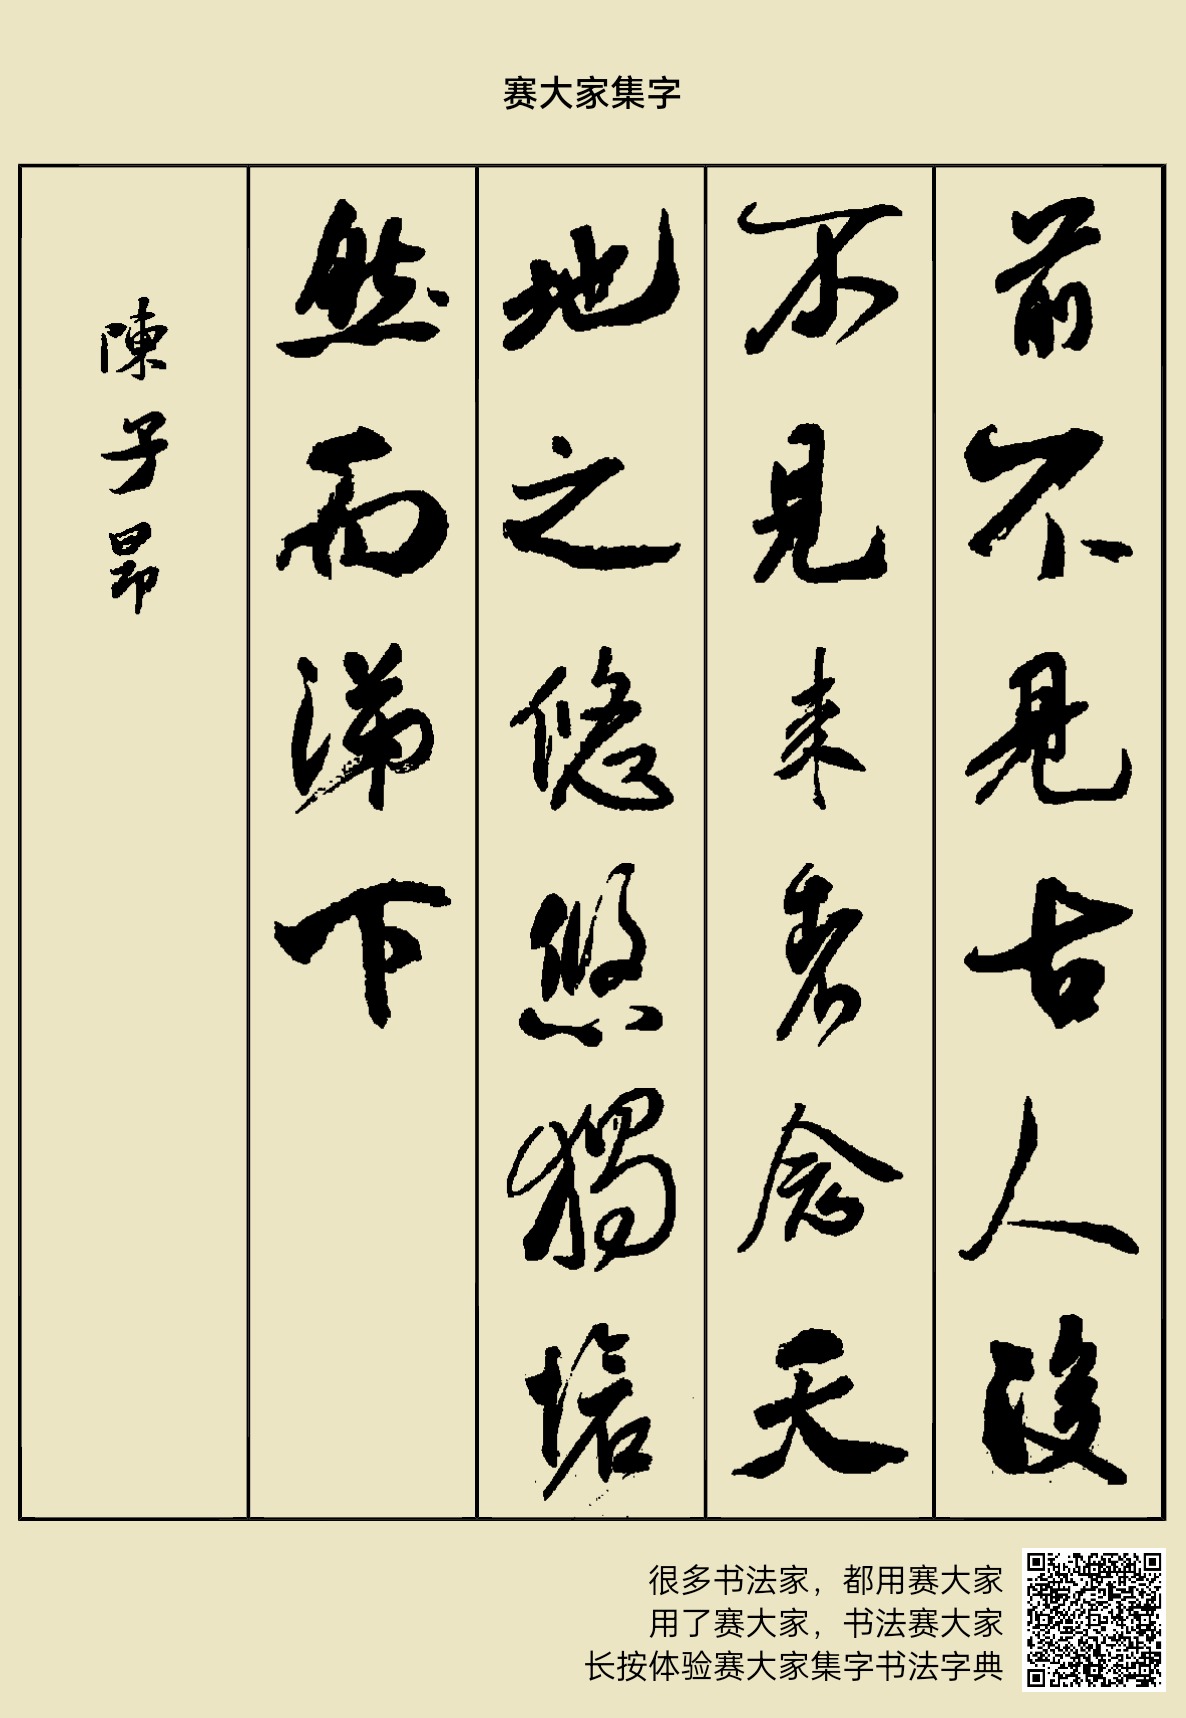 赛大家集字
前不見古人後
不見来者念天
地之悠悠獨愴
然而涕下
陳子昂
很多书法家，都用赛大家
用了赛大家，书法赛大家
长按体验赛大家集字书法字典